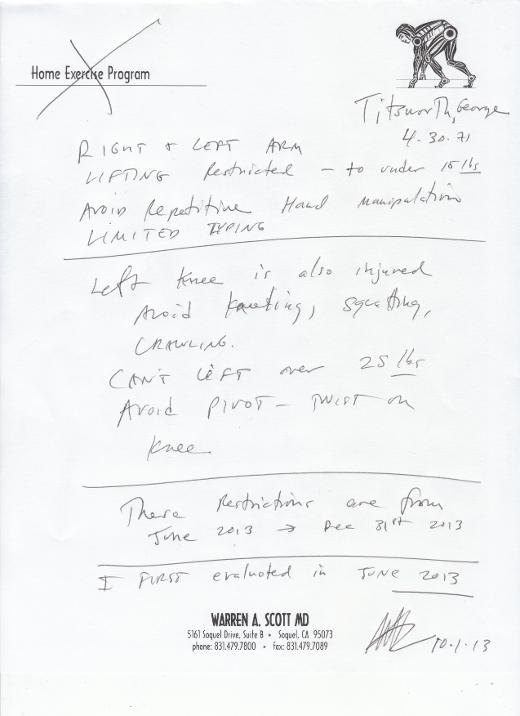 Home Exercise Program
Titsworth, George
4.30.71
RIGHT + LEFT ARM
LIFTING Restricted - to under 15 lbs
AVOID Repetitive Hand Manipulation
LIMITED TYPING
Left Knee is also injured
Avoid kneeling, squatting,
CRAWLING.
CAN'T LIFT over 25 lbs
AVOID PIVOT - TWIST on
Knee
These Restrictions are from
June 2013 → Dec 31st 2013
I FIRST evaluated in JUNE 2013
WARREN A. SCOTT MD
5161 Soquel Drive, Suite B • Soquel, CA 95073
phone: 831.479.7800 • fax: 831.479.7089
10.1.13